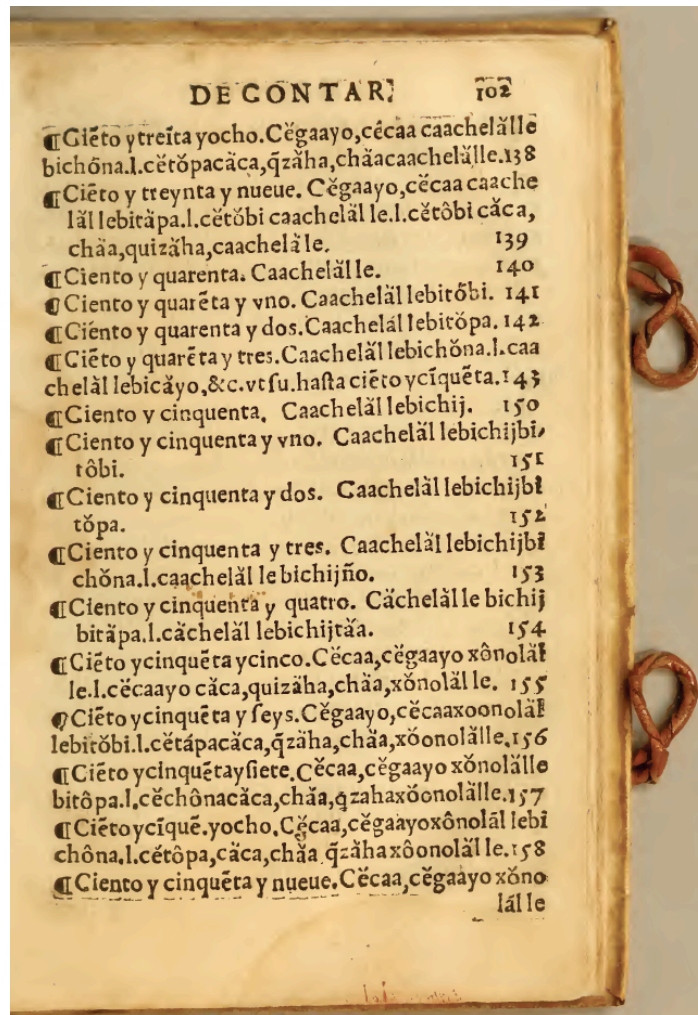 DE CONTAR. 102
¶Ciēto ytreīta yocho.Cĕgaayo,cécaa caachelălle
bichóna.l.cĕtŏpacăca,q̄zăha,chăacaachelălle.138
¶Ciēto y treynta y nueue. Cĕgaayo,cĕcaa caache
lăl lebităpa.l.cĕtŏbi caachelăl le.l.cĕtôbi căca,
chăa,quizăha,caachelăle. 139
¶Ciento y quarenta. Caachelăl le. 140
¶Ciento y quarēta y vno. Caachelăl lebitŏbi. 141
¶Ciento y quarenta y dos.Caachelăl lebitŏpa. 142
¶Ciēto y quarēta y tres.Caachelăl lebichŏna.l.caa
chelăl lebicăyo,&c.vt ſu.haſta ciēto ycīquēta.143
¶Ciento y cinquenta. Caachelăl lebichij. 150
¶Ciento y cinquenta y vno. Caachelăl lebichijbi,
tôbi. 151
¶Ciento y cinquenta y dos. Caachelăl lebichijbi
tŏpa. 152
¶Ciento y cinquenta y tres. Caachelăl lebichijbi
chŏna.l.caachelăl le bichijño. 153
¶Ciento y cinquenta y quatro. Căchelăl le bichij
bităpa.l.căchelăl lebichijtăa. 154
¶Ciēto ycinquēta ycinco.Cĕcaa,cĕgaayo xônolăl
le.l.cĕcaayo căca,quizăha,chăa,xŏnolăl le. 155
¶Ciēto ycinquēta y ſeys.Cĕgaayo,cĕcaaxoonolăl
lebitŏbi.l.cĕtápacăca,q̄zăha,chăa,xŏonolălle.156
¶Ciēto ycinquētayſiete.Cĕcaa,cĕgaayo xŏnolălle
bitôpa.l.cĕchônacăca,chăa,q̄zahaxŏonolălle.157
¶Ciētoycīquē.yocho.Cĕcaa,cĕgaayoxônolăl lebi
chôna.l.cétôpa,căca,chăa q̄zăhaxôonolăl le.158
¶Ciento y cinquēta y nueue.Cĕcaa,cĕgaayo xŏno
lăl le